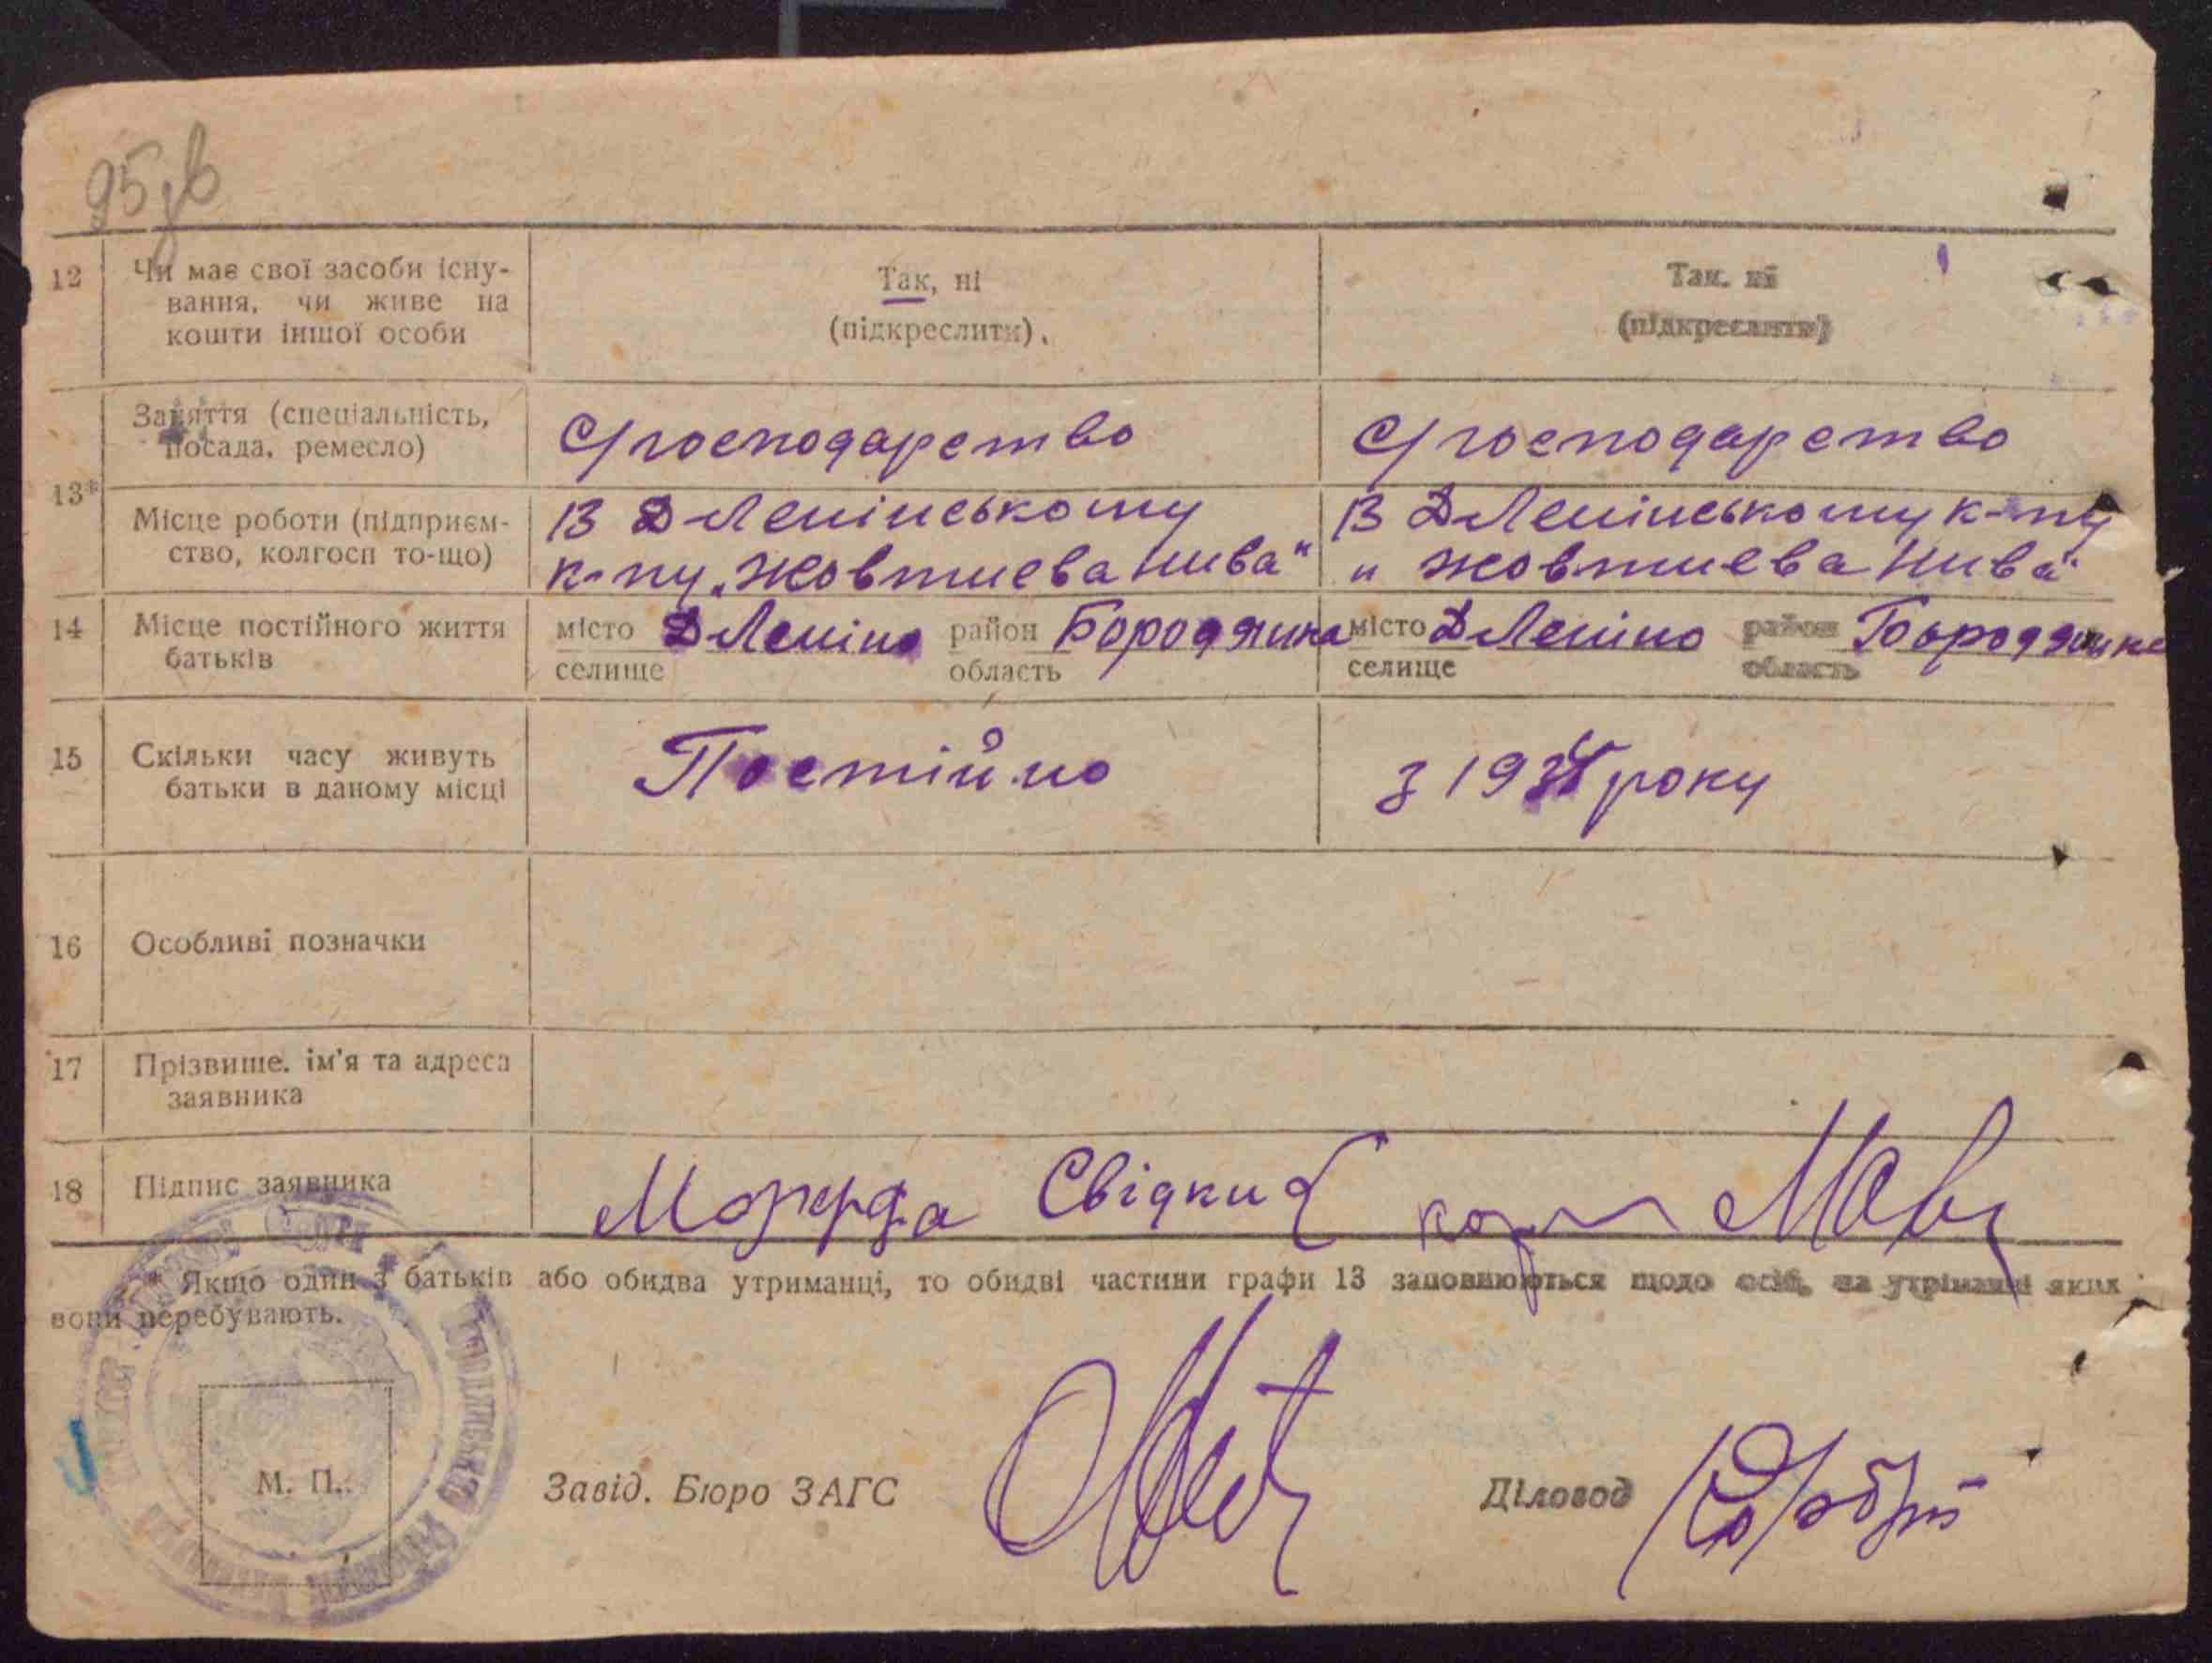 95зв
12
Чи має свої засоби існу-
вання, чи живе на
кошти іншої особи
Так, ні
(підкреслити)
Так, ні
(підкреслити)
13*
Заняття (спеціальність,
посада, ремесло)
С/господарство
С/господарство
Місце роботи (підприєм-
ство, колгосп то-що)
В Д Ленінському
к-пу „Жовтнева Нива"
В Д Ленінському к-пу
„Жовтнева Нива"
14
Місце постійного життя
батьків
місто Д Леніно район Бородянка
селище область
місто Д Леніно район Бородянка
селище область
15
Скільки часу живуть
батьки в даному місці
Постійно
з 1934 року
16
Особливі позначки
17
Прізвище, ім'я та адреса
заявника
18
Підпис заявника
Свідки
* Якщо один з батьків або обидва утриманці, то обидві частини графи 13 заповнюються щодо осіб, на утріманні яких
вони перебувають.
М. П.
Завід. Бюро ЗАГС
Діловод